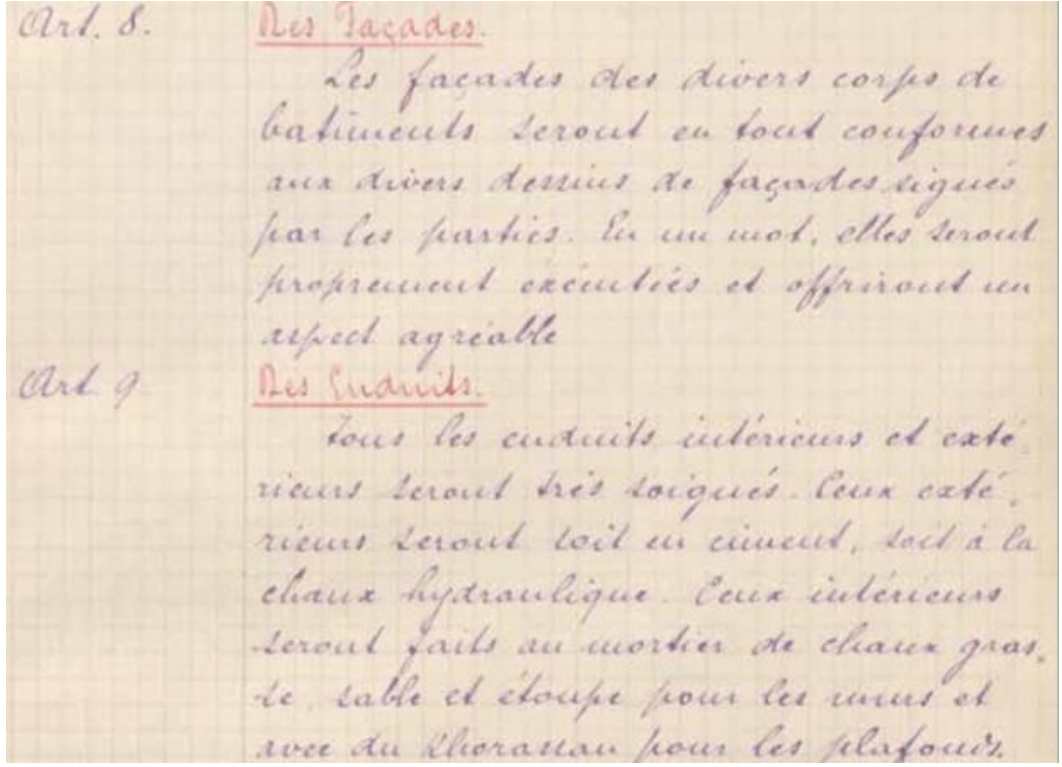 Art. 8. Des Façades.
Les façades des divers corps de
batiments seront en tout conformes
aux divers dessins de façades signés
par les parties. En un mot, elles seront
proprement exécutées et offriront un
aspect agréable
Art. 9 Des Enduits.
Tous les enduits intérieurs et exté
rieurs seront très soignés. Ceux exté.
rieurs seront soit en ciment, soit à la
chaux hydraulique. Ceux intérieurs
seront faits au mortier de chaux gras.
se, sable et étoupe pour les murs et
avec du Khorassan pour les plafonds.